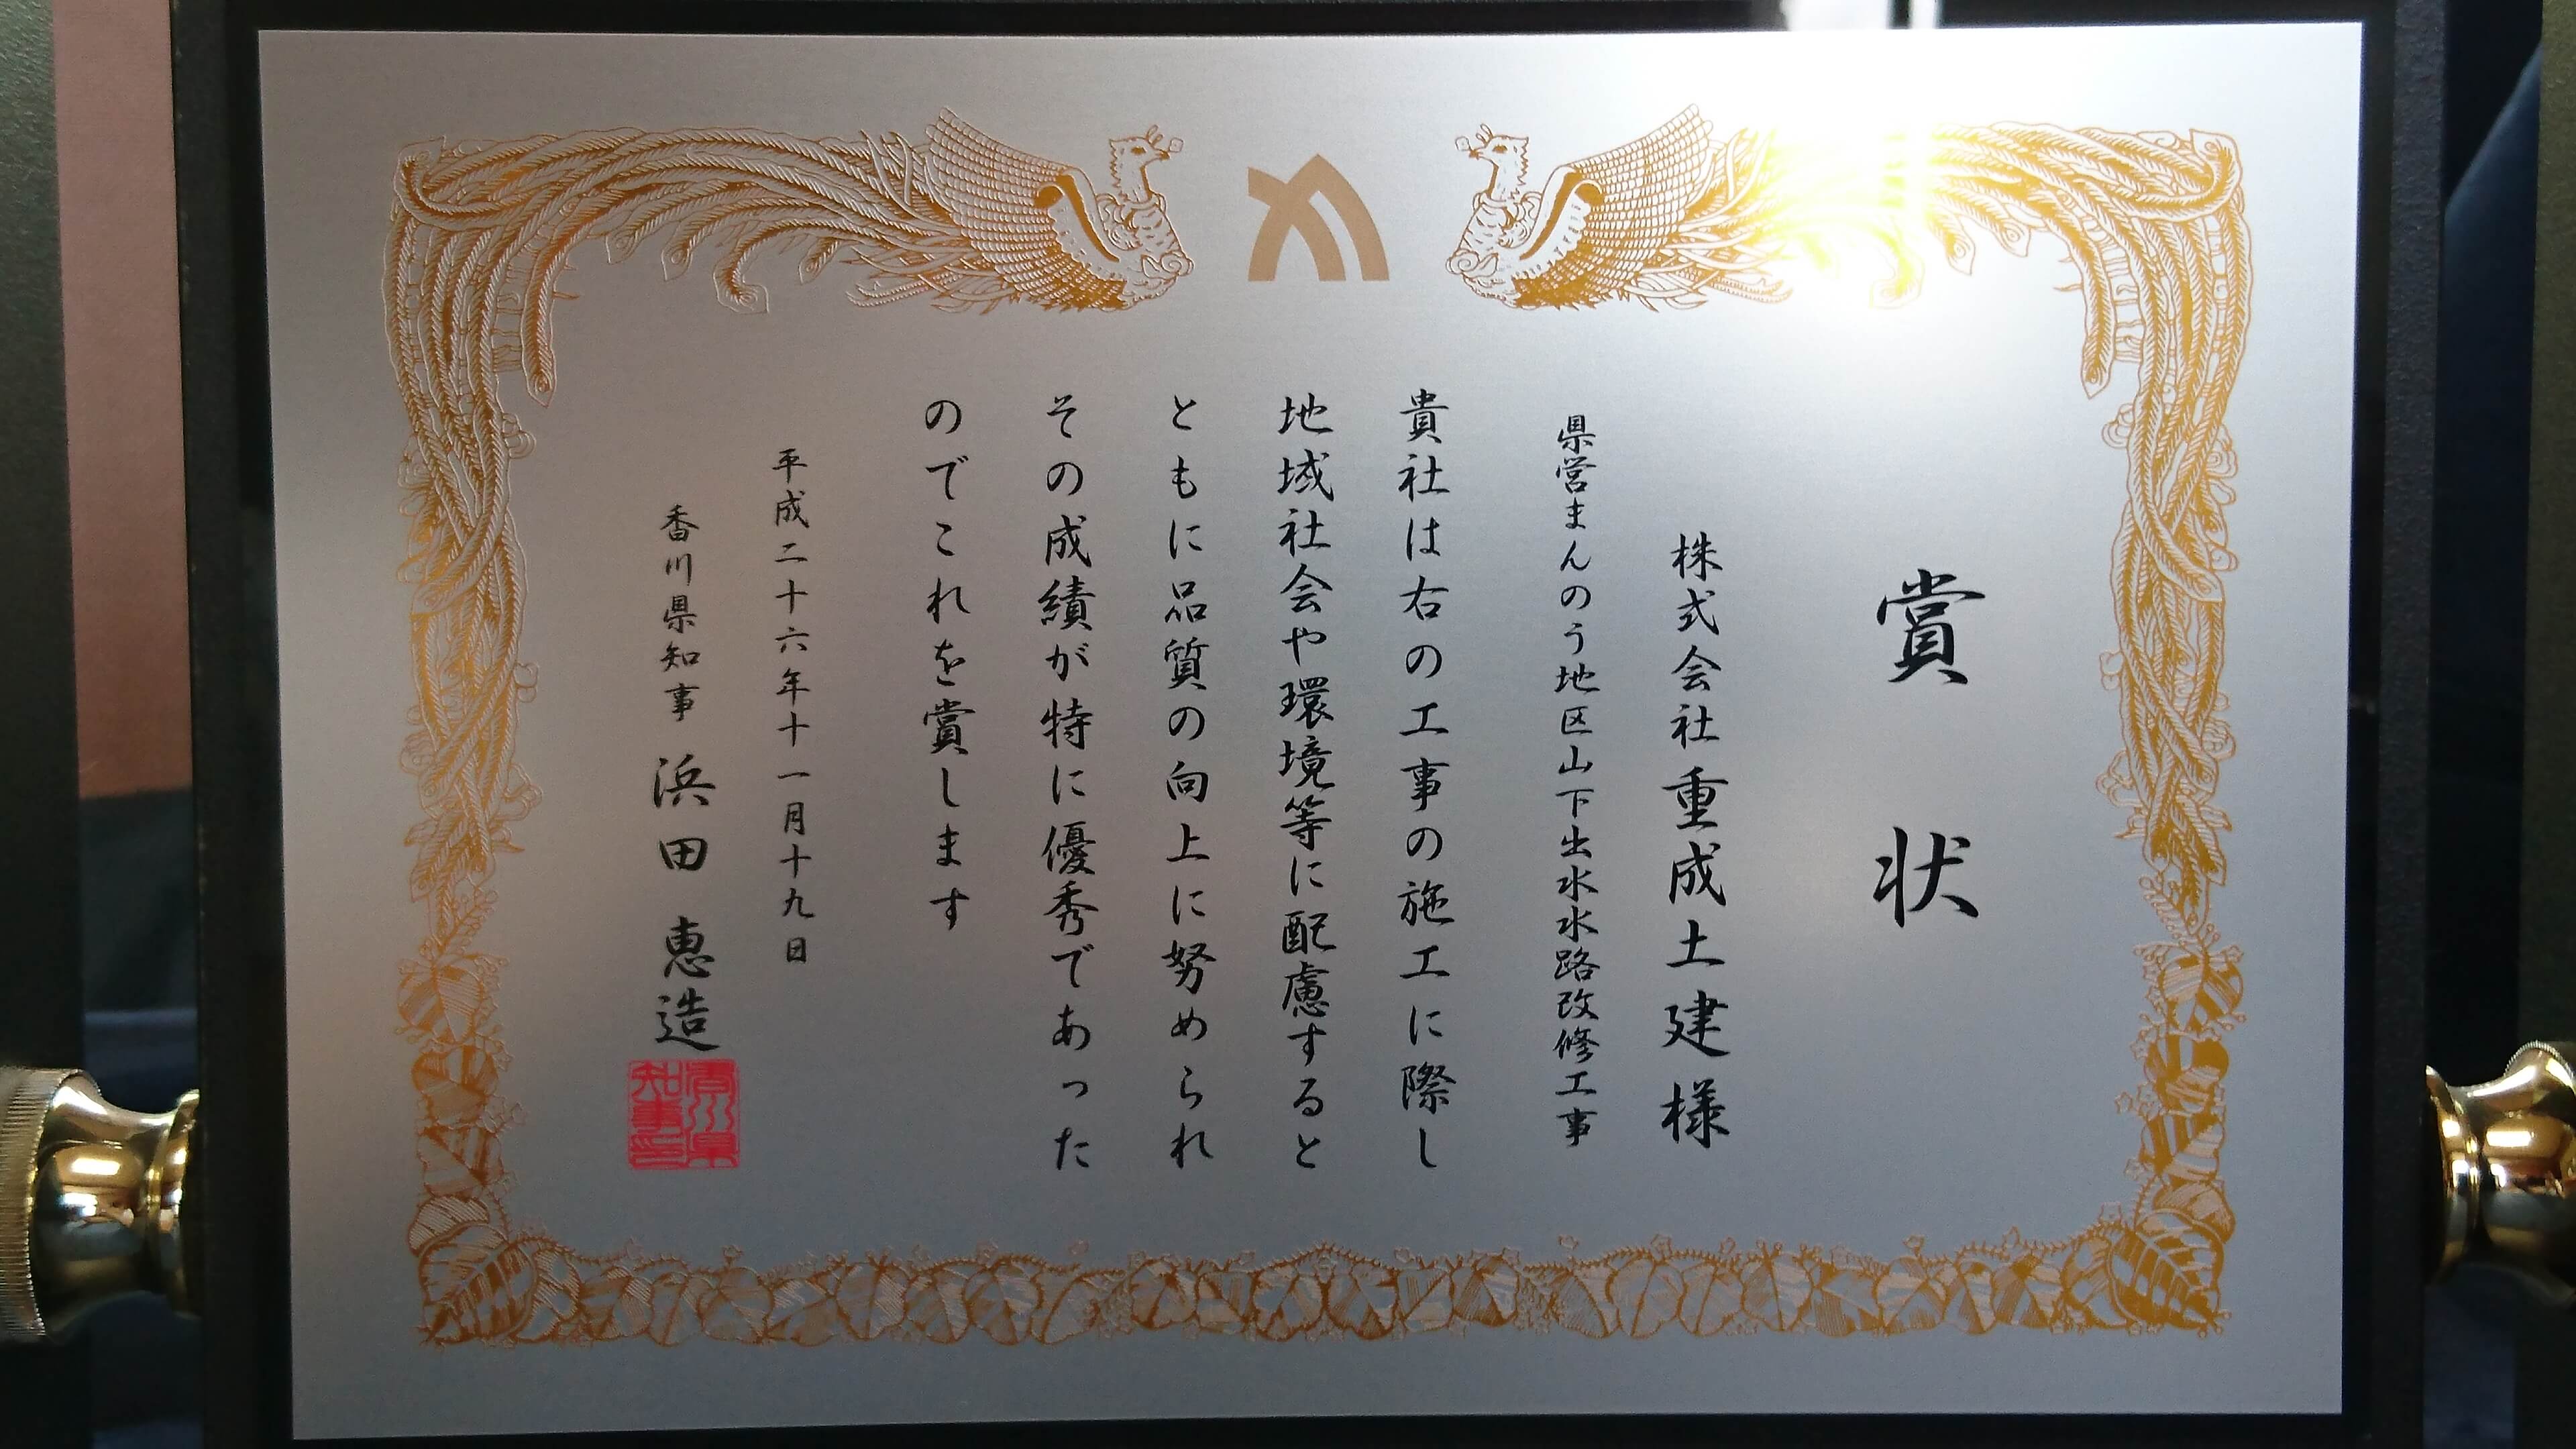 賞状
株式会社重成土建様
県営まんのう地区山下出水水路改修工事
貴社は右の工事の施工に際し
地域社会や環境等に配慮すると
ともに品質の向上に努められ
その成績が特に優秀であった
のでこれを賞します
平成二十六年十一月十九日
香川県知事 浜田恵造
香川県
知事印